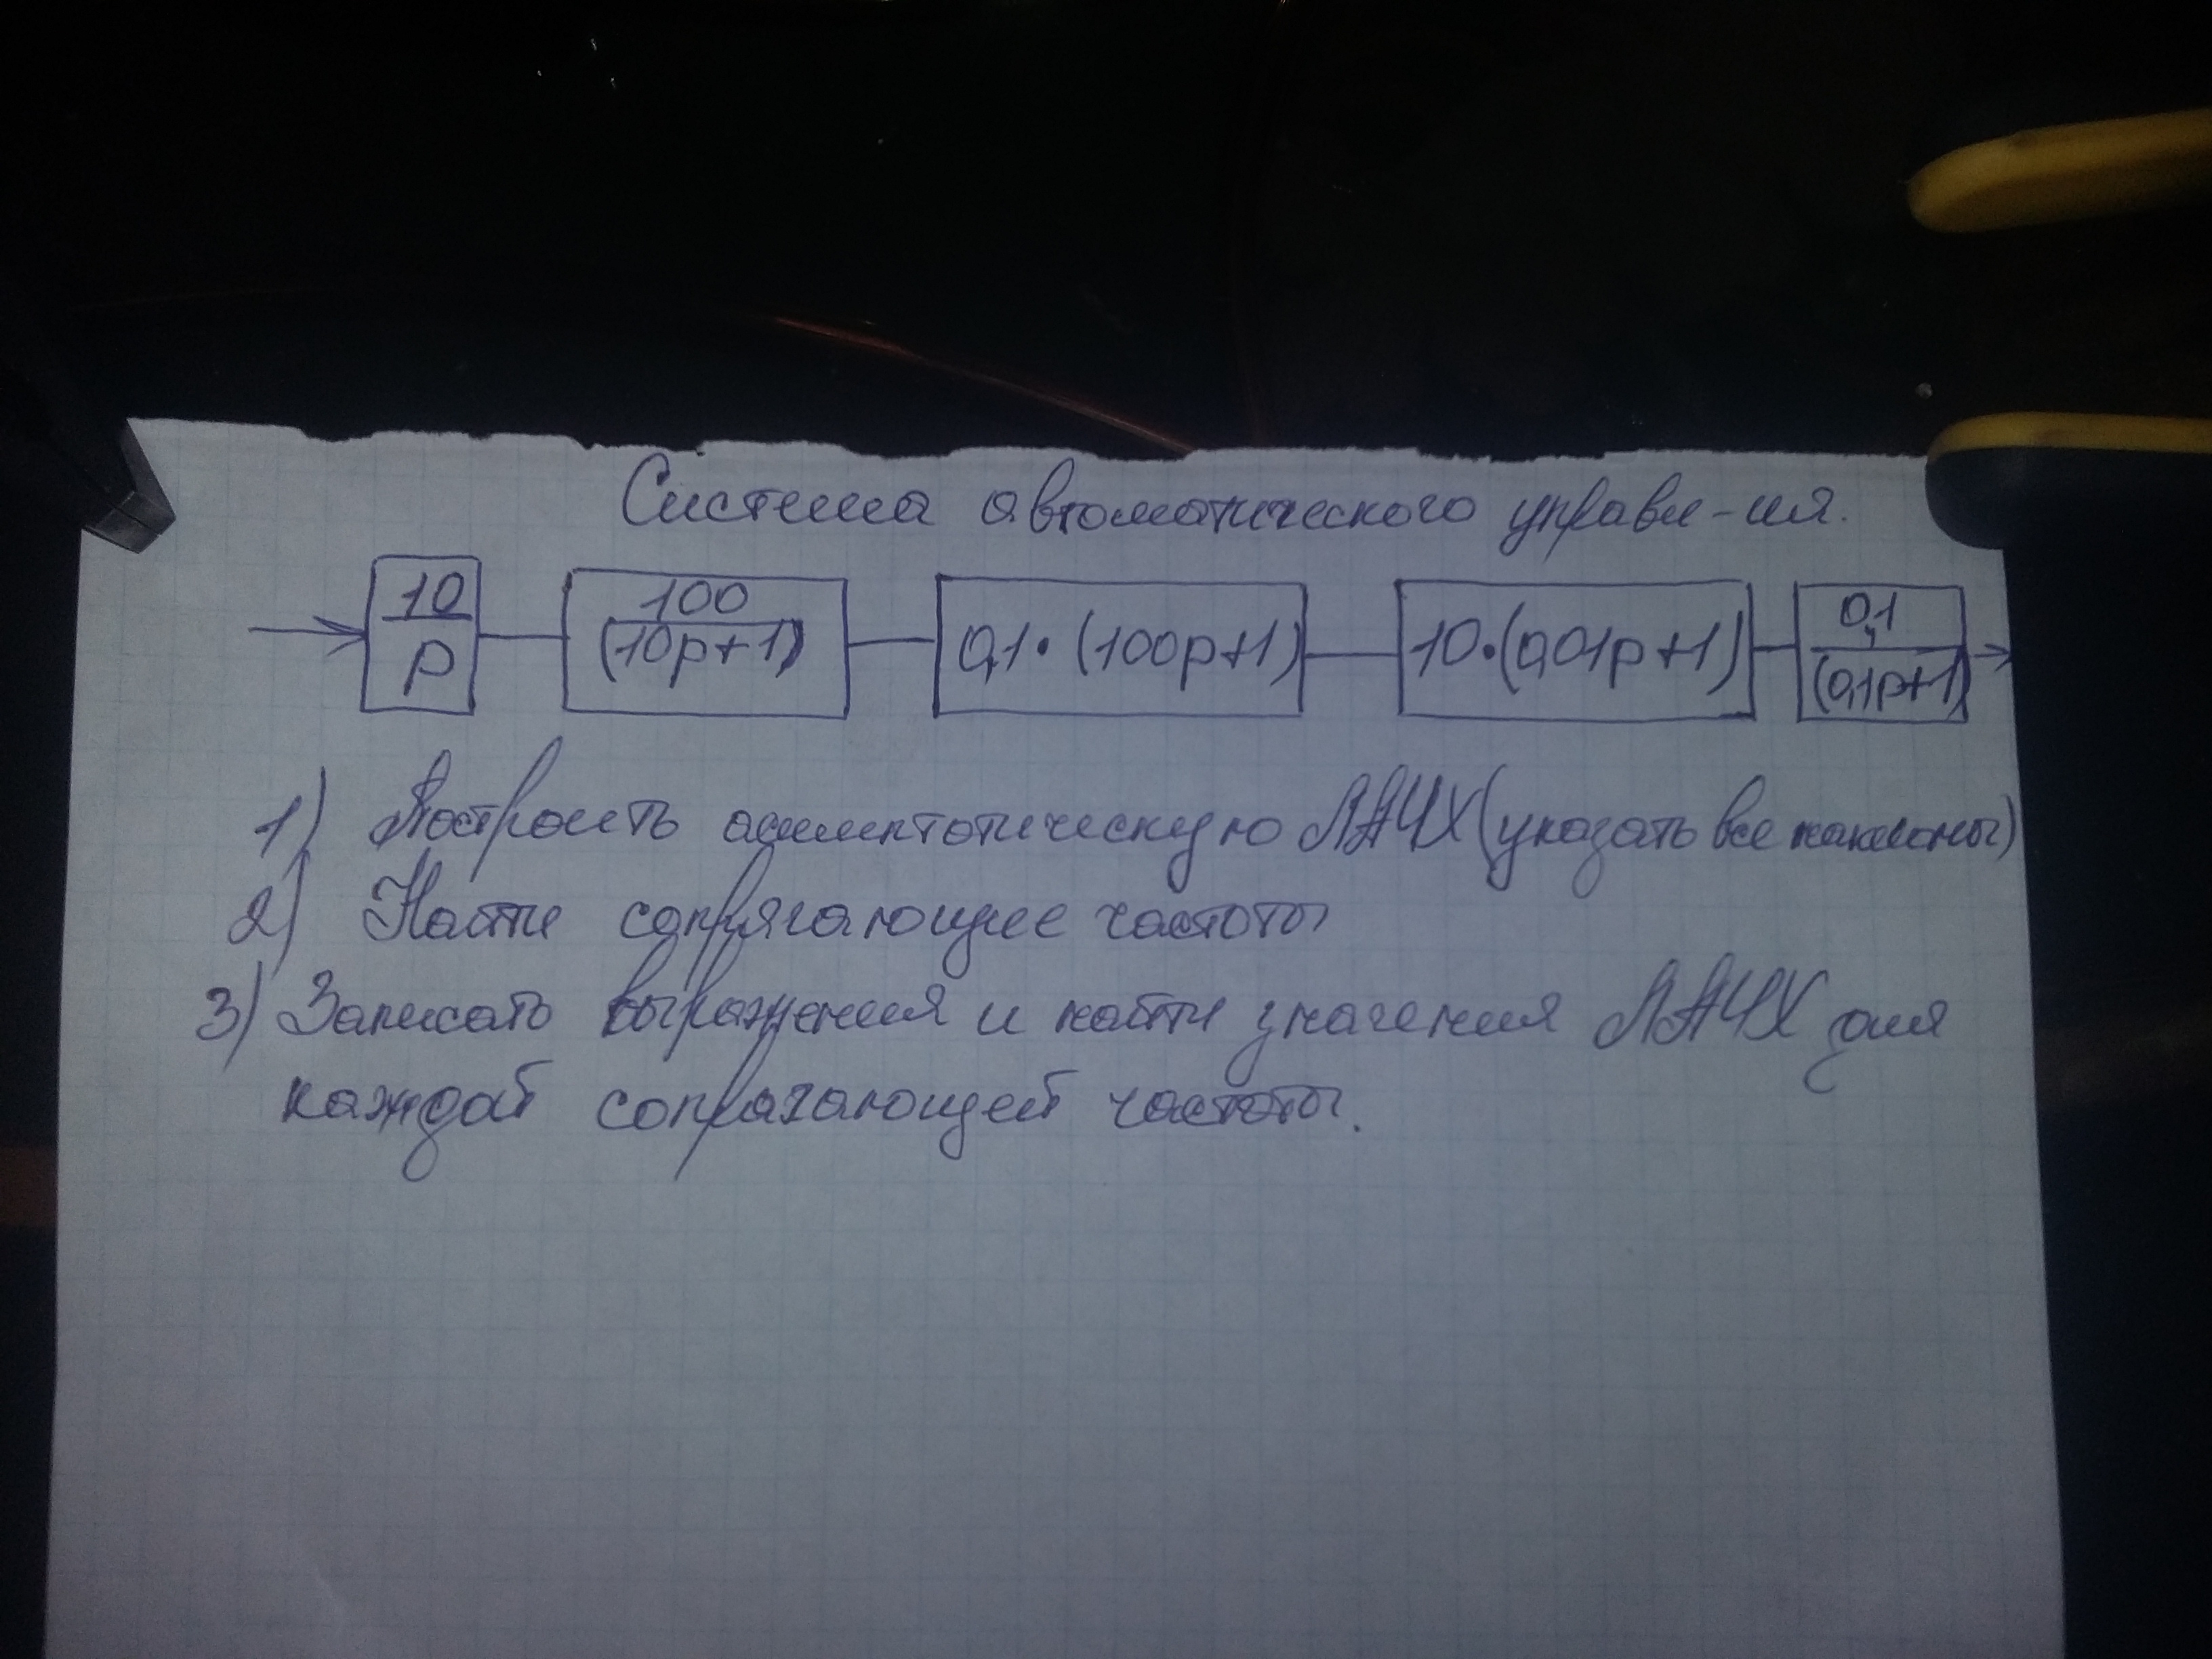 Система автоматического управл-ия.
10/p 100/(10p+1) 0,1·(100p+1) 10·(0,01p+1) 0,1/(0,1p+1)
1) Построить асимптотическую ЛАЧХ (указать все наклоны)
2) Найти сопрягающие частоты
3) Записать выражения и найти значения ЛАЧХ для
каждой сопрягающей частоты.